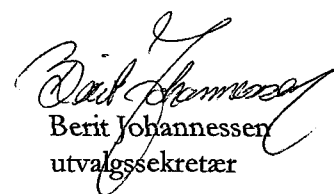 Berit Johannessen
Berit Johannessen
utvalgssekretær